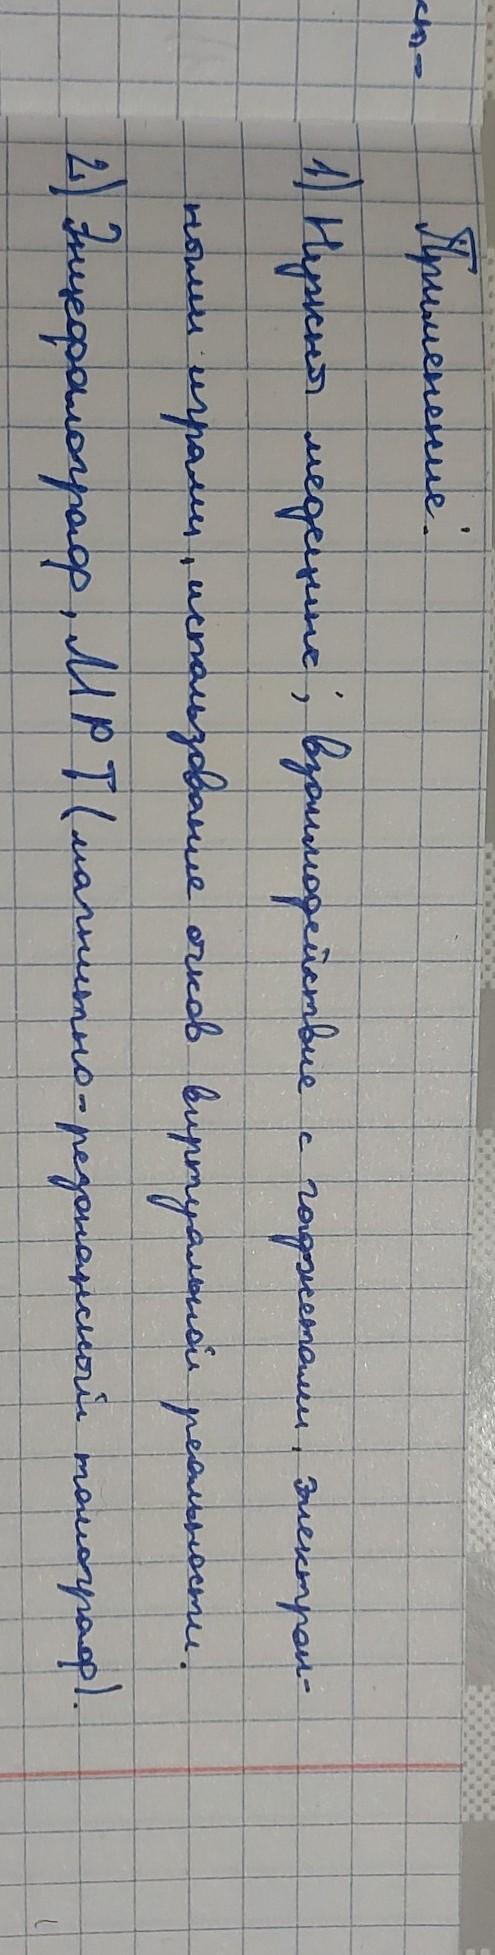 Применение:
1) Нужны медецине, взаимодействие с гаджетами, электрон-
ными играми, использование очков виртуальной реальности.
2) Энцефалограф, МРТ (магнитно-резонансный томограф).